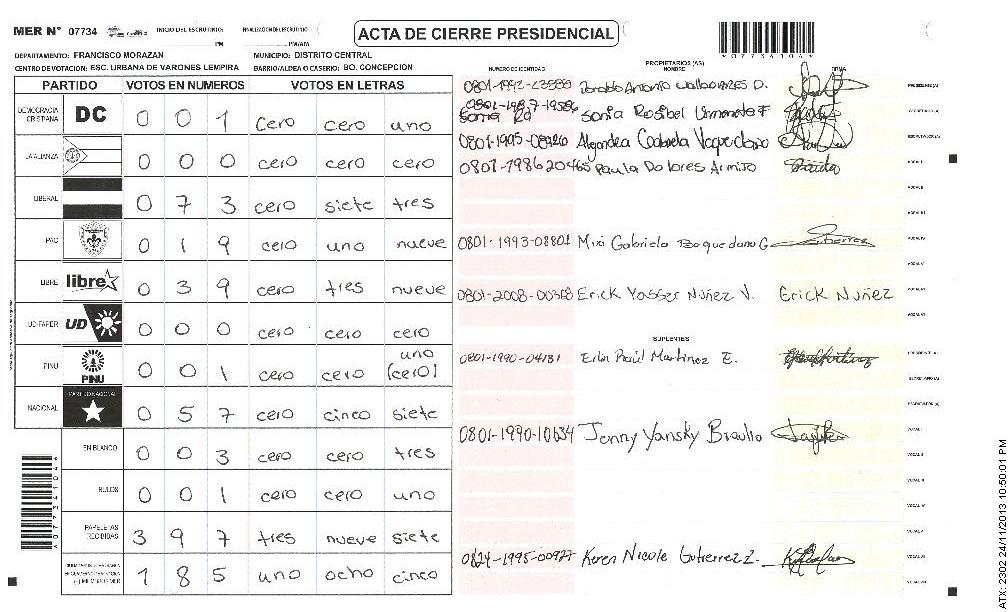 MER Nº 07734 INICIO DEL ESCRUTINIO: PM FINALIZACION DEL ESCRUTINIO PM/AM
ACTA DE CIERRE PRESIDENCIAL
DEPARTAMENTO: FRANCISCO MORAZAN MUNICIPIO: DISTRITO CENTRAL
CENTRO DE VOTACION: ESC. URBANA DE VARONES LEMPIRA BARRIO/ALDEA O CASERIO: BO. CONCEPCION
PARTIDO VOTOS EN NUMEROS VOTOS EN LETRAS
DEMOCRACIA CRISTIANA DC 0 0 1 cero cero uno
LA ALIANZA 0 0 0 cero cero cero
LIBERAL 0 7 3 cero siete tres
PAC 0 1 9 cero uno nueve
LIBRE libre 0 3 9 cero tres nueve
UD-FAPER UD 0 0 0 cero cero cero
PINU PINU 0 0 1 cero cero uno (cero)
NACIONAL PARTIDO NACIONAL 0 5 7 cero cinco siete
EN BLANCO 0 0 3 cero cero tres
NULOS 0 0 1 cero cero uno
PAPELETAS RECIBIDAS 3 9 7 tres nueve siete
1 8 5 uno ocho cinco
NUMERO DE IDENTIDAD PROPIETARIOS (AS) NOMBRE FIRMA
Antonio PRESIDENTE (A)
0801-1987-19586 Sonia Rosibel SECRETARIO (A)
0801-1995-08926 Alejandra Gabriela Vaquedano ESCRUTADOR (A)
0801-1986 20465 Paula Dolores Armijo VOCAL I
VOCAL II
VOCAL III
0801-1993-08801 Mixi Gabriela Baquedano G. VOCAL IV
VOCAL V
0801-2008-00368 Erick Yasser Nuñez V. Erick Nuñez
VOCAL VI
SUPLENTES
0801-1990-04131 Erlin Raúl Martinez E. PRESIDENTE (A)
SECRETARIO (A)
ESCRUTADOR (A)
0801-1990-10634 Jenny Yansky Braulio VOCAL I
VOCAL II
VOCAL III
VOCAL IV
VOCAL V
0824-1995-00977 Keren Nicole Gutierrez Z. VOCAL VI
VOCAL VII
ATX: 2302 24/11/2013 10:50:01 PM